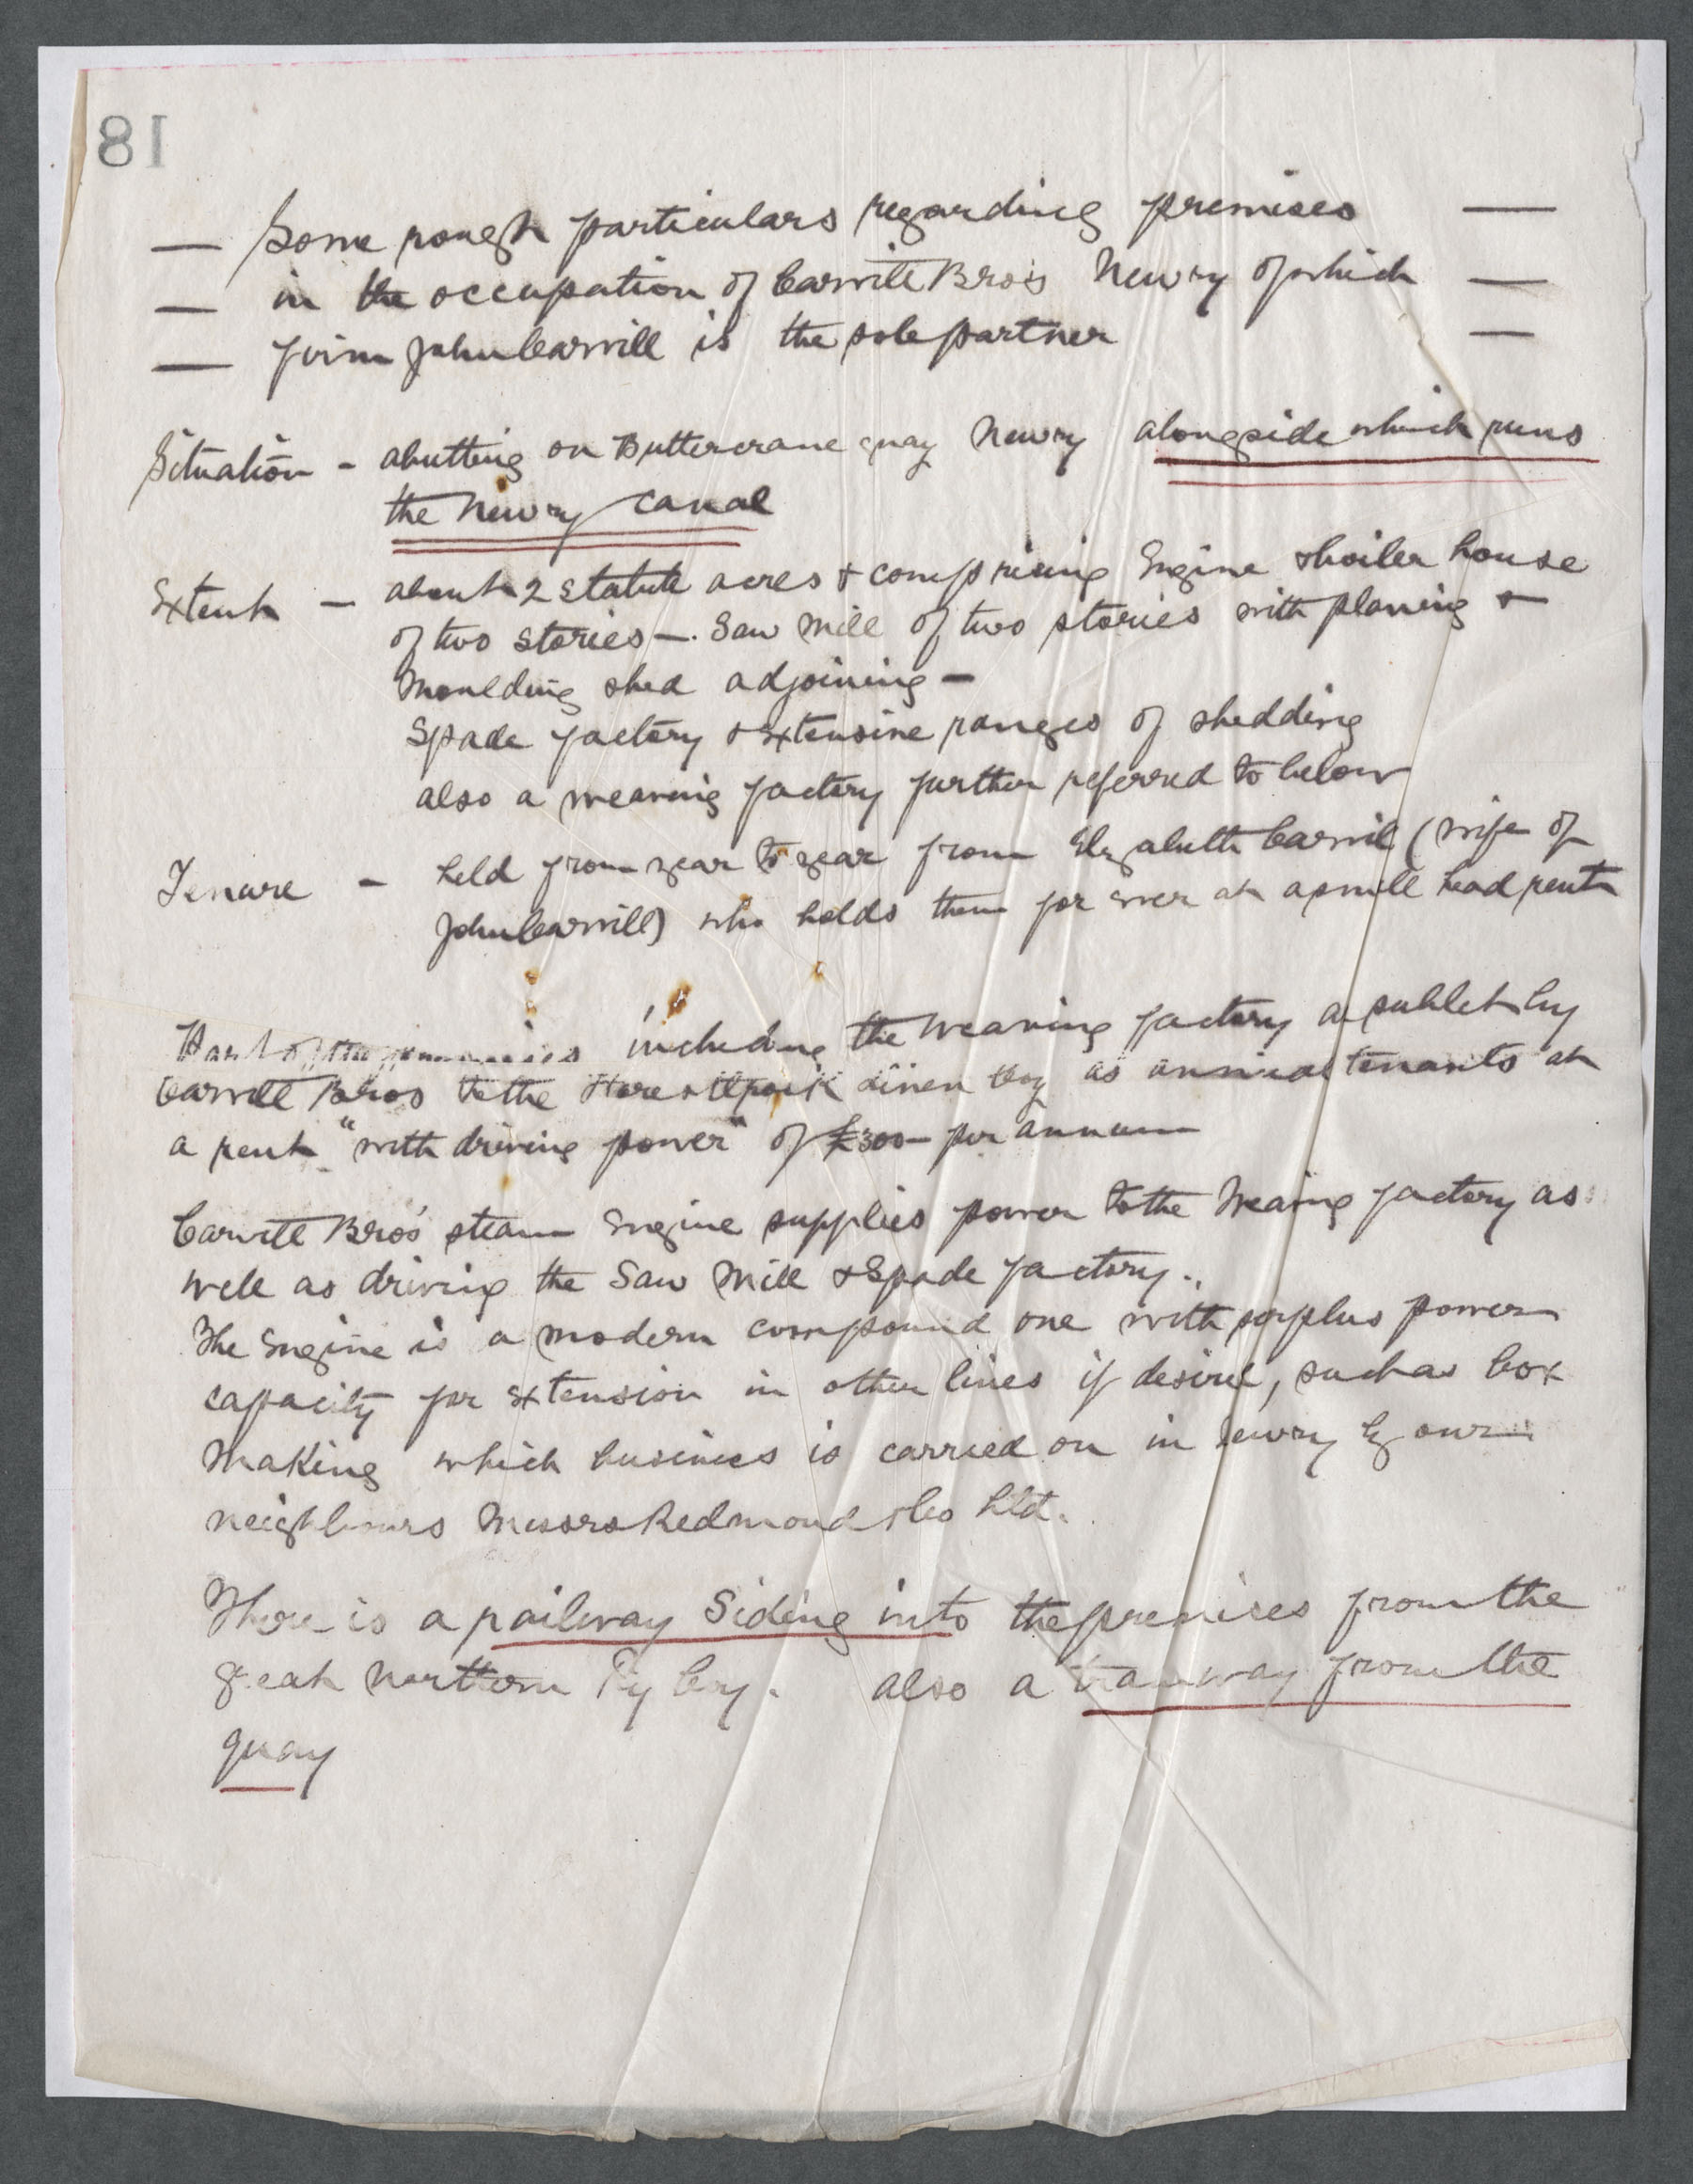 18
— Some rough particulars regarding premises —
— in the occupation of Carvill Bro's Newry of which —
— firm John Carvill is the sole partner —
Situation - abutting on Buttercrane quay Newry alongside which runs
the Newry Canal
Extent — about 2 statute acres & comprising Engine & boiler house
of two stories —. Saw Mill of two stories with planing &
Moulding shed adjoining —
Spade factory & extensive ranges of shedding
also a weaving factory further referred to below
Tenure - held from year to year from Elizabeth Carvill (wife of
John Carvill) who holds them for ever at a small head rent
Part of the premises including the Weaving factory is sublet by
Carvill Bros to the Linen Coy as annual tenants at
a rent "with driving power" of £300 — per annum
Carvill Bro's steam Engine supplies power to the Weaving factory as
well as driving the Saw Mill & Spade factory.
The Engine is a modern compound one with surplus power
capacity for extension in other lines if desired, such as box
Making which business is carried on in Newry by our
neighbours Messrs Redmond & Co Ltd.
There is a railway Siding into the premises from the
Great Northern Ry Coy. also a tramway from the
quay